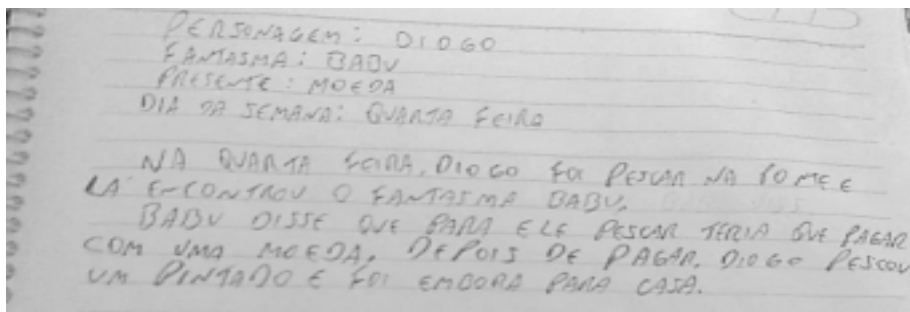 PERSONAGEM: DIOGO
FANTASMA: BABU
PRESENTE: MOEDA
DIA DA SEMANA: QUARTA FEIRA
NA QUARTA FEIRA, DIOGO FOI PESCAR NA E
LÁ ENCONTROU O FANTASMA BABU.
BABU DISSE QUE PARA ELE PESCAR TERIA QUE PAGAR
COM UMA MOEDA. DEPOIS DE PAGAR, DIOGO PESCOU
UM PINTADO E FOI EMBORA PARA CASA.